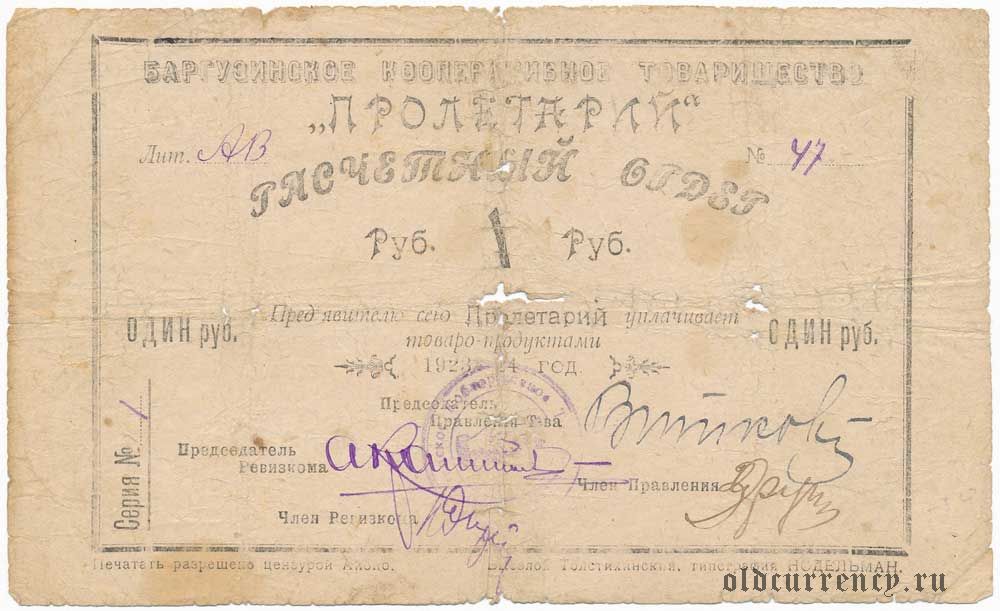 БАРГУЗИНСКОЕ КООПЕРАТИВНОЕ ТОВАРИЩЕСТВО
„ПРОЛЕТАРИЙ“
Лит. АВ № 47
РАСЧЕТНЫЙ ОРДЕР
Руб. 1 Руб.
ОДИН руб. Пред'явителю сего Пролетарий уплачивает ОДИН руб.
товаро-продуктами
1923-24 год.
Председатель
Правления Т-ва
Председатель
Ревизкома
Член Правления
Член Ревизкома
Серия № 1
Печатать разрешено цензурой
Толстихинский, типография НОДЕЛЬМАН.
oldcurrency.ru